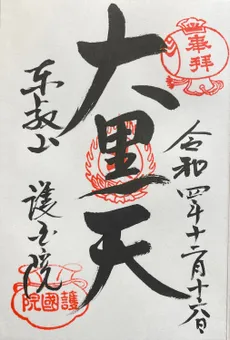 奉拝
令和四年十二月十六日
大黒天
東叡山
護国院
護國院